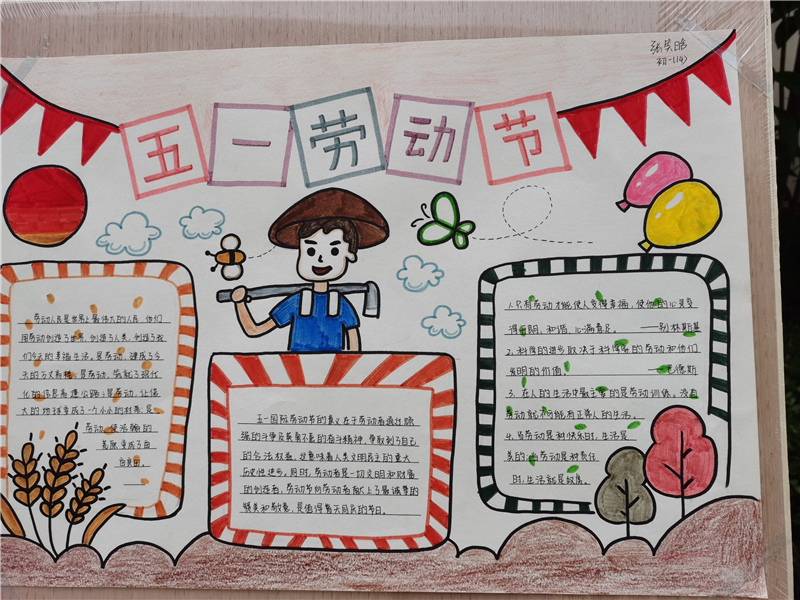 五一劳动节
劳动人民是世界上最伟大的人民,他们
用劳动创造了世界,创造了人类,创造了我
们今天的幸福生活,是劳动,建成了今
天的万丈高楼;是劳动,筑就了现代
化的信息高速公路;是劳动,让偌
大的地球变成了一个小小的村落;是
劳动,使浩瀚的
荒原变成了亩
亩良田。
五一国际劳动节的意义在于劳动者通过顽
强的斗争及英勇不屈的奋斗精神,争取到了自己
的合法权益,这意味着人类文明民主的重大
历史性进步,同时,劳动者是一切文明和财富
的创造者,劳动节的劳动者献上了最诚挚的
赞美和敬意,是值得普天同庆的节日。
1、只有劳动才能使人变得幸福,使他的心灵变
得开朗、和谐、心满意足。——别林斯基
2、科学的进步取决于科学家的劳动和他们
发明的价值。
3、在人的生活中最主要的是劳动训练。没有
劳动就不可能有正常人的生活。
4、当劳动是种快乐时,生活是
美的;当劳动是种责任
时,生活就是奴役。